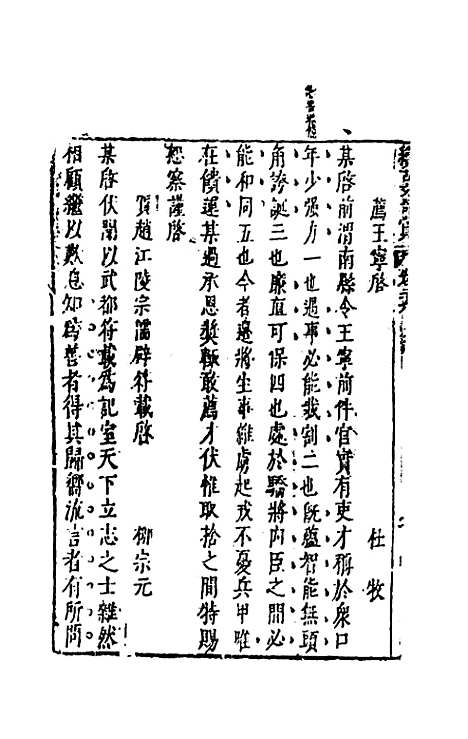 薦王寧啓　　杜牧
某啓前渭南縣令王寧前件官實有吏才稱於衆口
年少强力一也遇事必能裁割二也既蘊智能無頭
角誇誕三也廉直可保四也處於驕將內臣之間必
能和同五也今者邊將生事雜虜起戎不憂兵甲唯
在饋運某過承恩奬輙敢薦才伏惟取捨之間特賜
恕察謹啓
賀趙江陵宗儒辟符載啓　　柳宗元
某啓伏聞以武都符載爲記室天下立志之士雜然
相顧繼以歎息知爲善者得其歸嚮流言者有所問